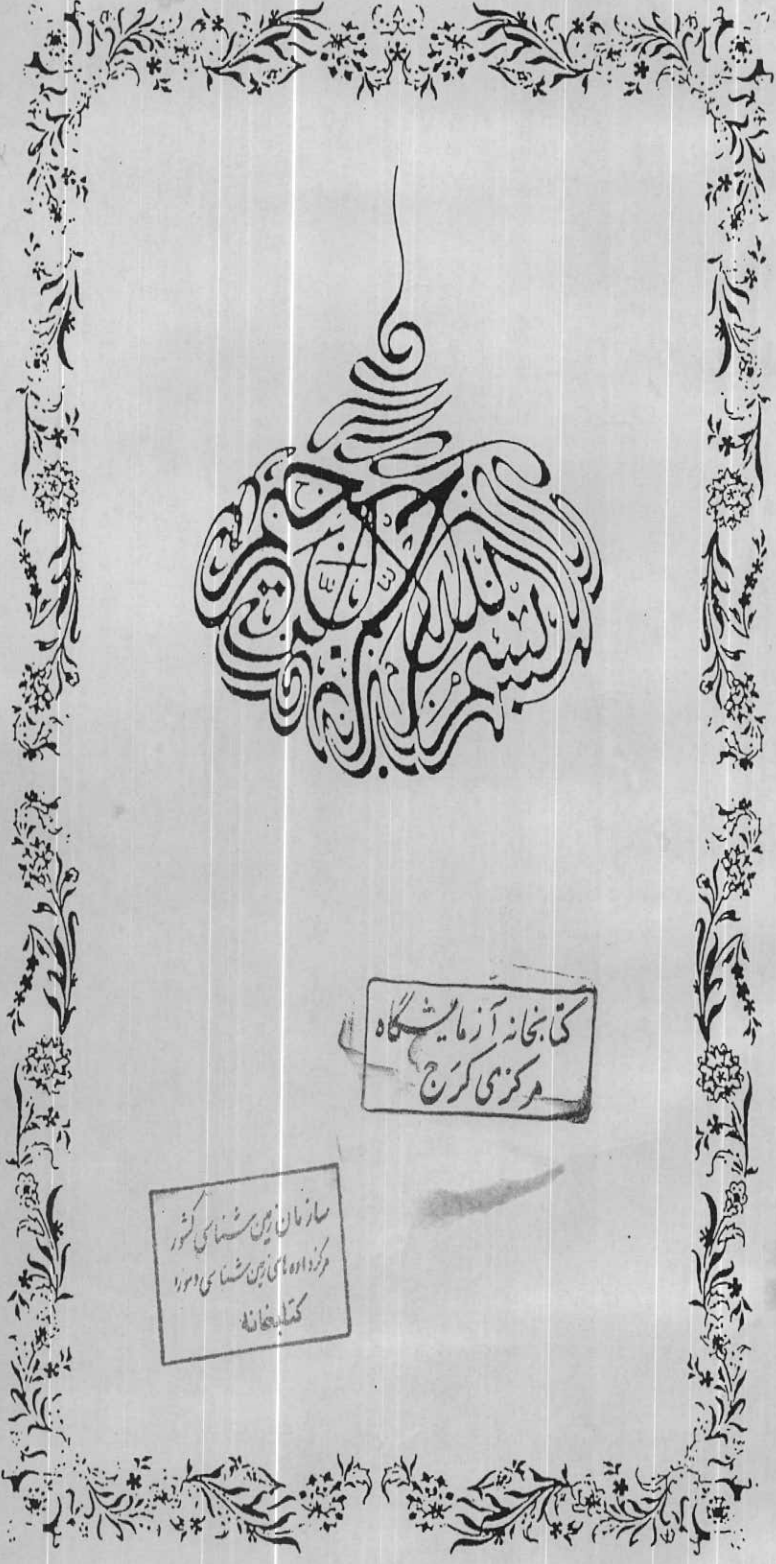 بسم الله الرحمن الرحيم
کتابخانه آزمایشگاه
مرکزی کرج
سازمان زمین شناسی کشور
مرکز داده های زمین شناسی
کتابخانه